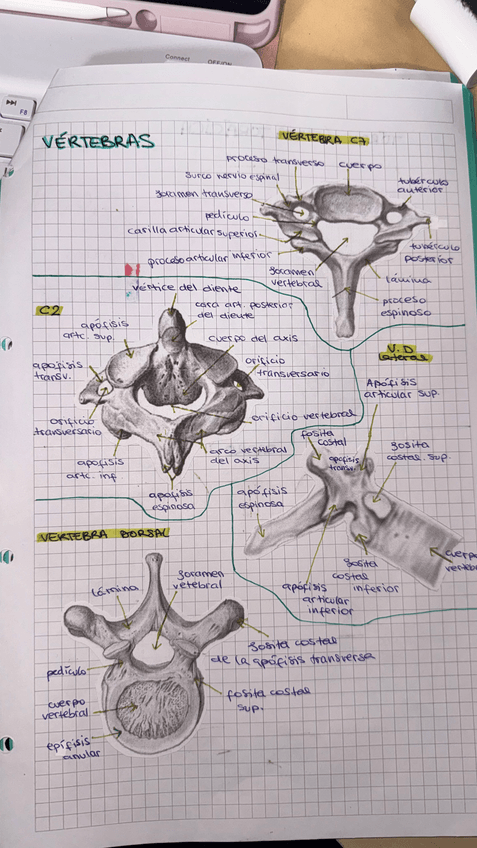 Connect
OFF/ON
F8
VÉRTEBRAS
VÉRTEBRA C7
proceso transverso
cuerpo
surco nervio espinal
foramen transverso
pedículo
carilla articular superior
proceso articular inferior
foramen
vertebral
tubérculo
anterior
tubérculo
posterior
lámina
proceso
espinoso
C2
vértice del diente
cara art. posterior
del diente
cuerpo del axis
orificio
transversario
orificio vertebral
arco vertebral
del axis
apófisis
espinosa
apófisis
artc. inf
orificio
transversario
apófisis
transv.
apófisis
artc. sup.
V.D
lateral
Apófisis
articular sup.
fosita
costal
apófisis
transv.
fosita
costal sup.
apófisis
espinosa
apófisis
articular
inferior
fosita
costal
inferior
cuerpo
vertebr
VERTEBRA DORSAL
lámina
foramen
vetebral
fosita costal
de la apófisis transversa
fosita costal
sup.
pedículo
cuerpo
vertebral
epífisis
anular